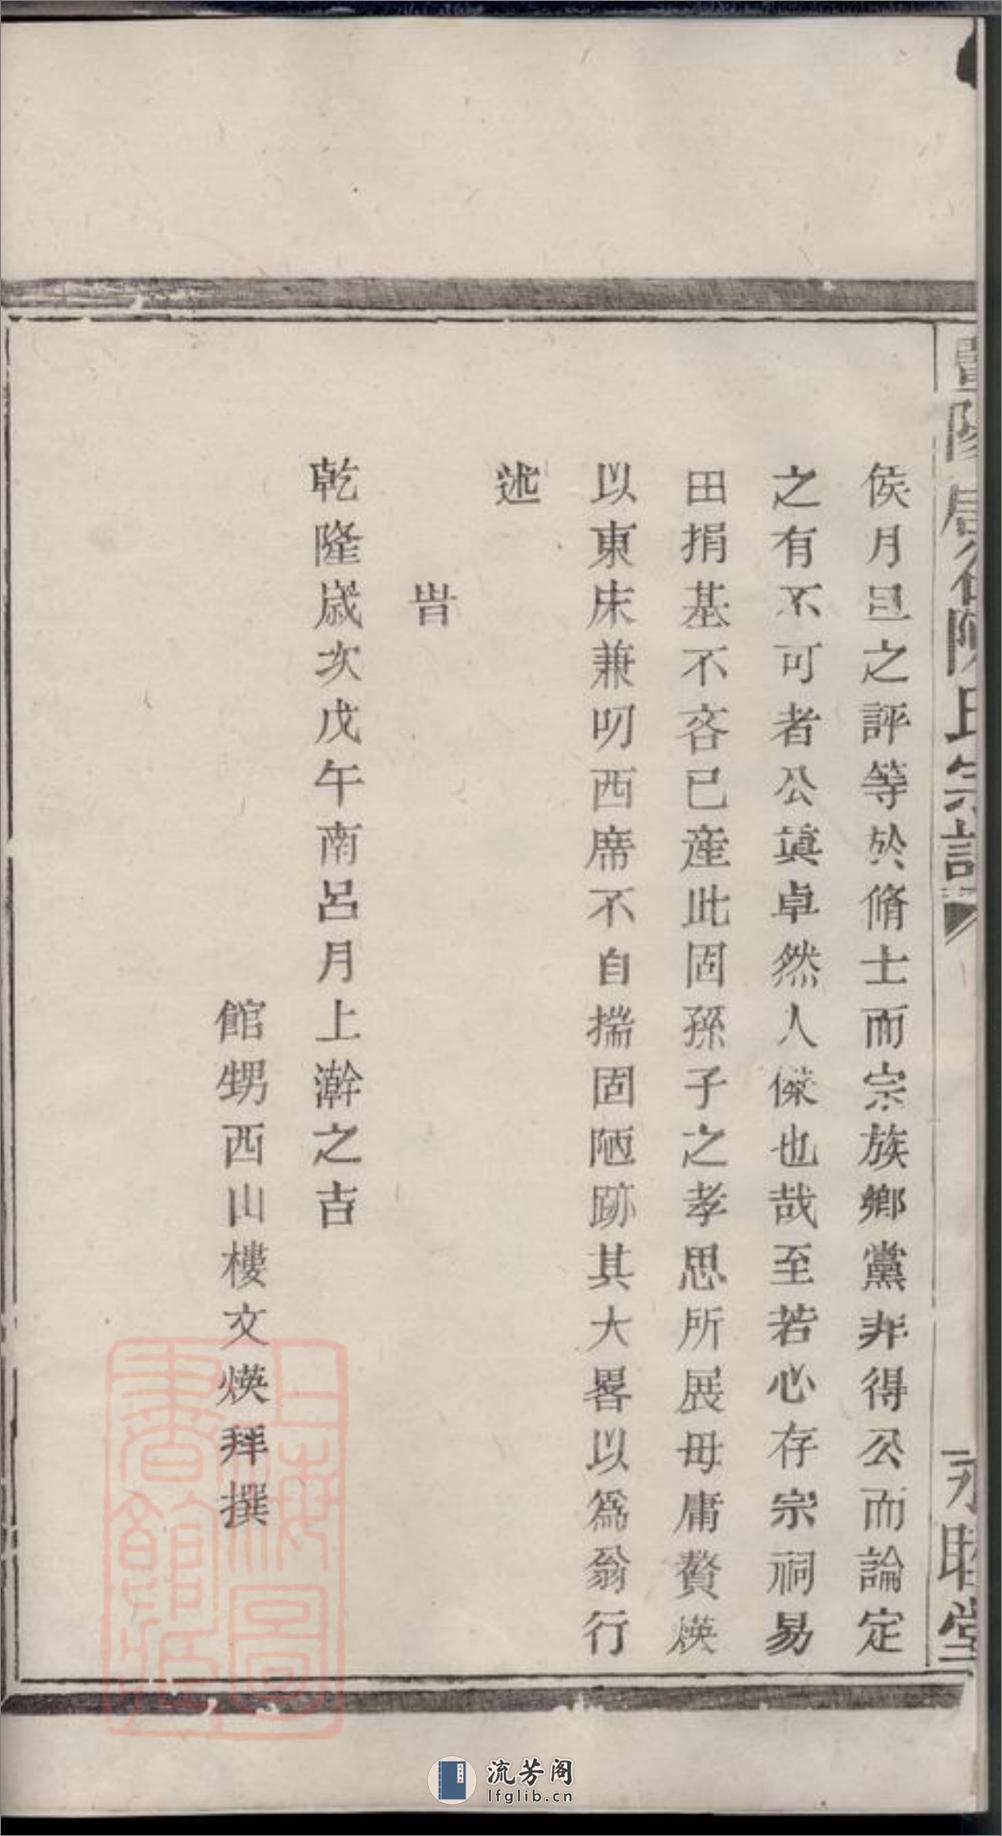 暨陽 陳氏宗譜
永睦堂
侯月旦之評等於脩士而宗族鄉黨非得公而論定
之有不可者公眞卓然人傑也哉至若心存宗祠易
田捐基不吝已產此固孫子之孝思所展毋庸贅煐
以東床兼叨西席不自揣固陋跡其大畧以爲翁行
述
旹
乾隆歲次戊午南呂月上澣之吉
館甥西山樓文煐拜撰
上海圖書館藏
流芳阁
lfglib.cn